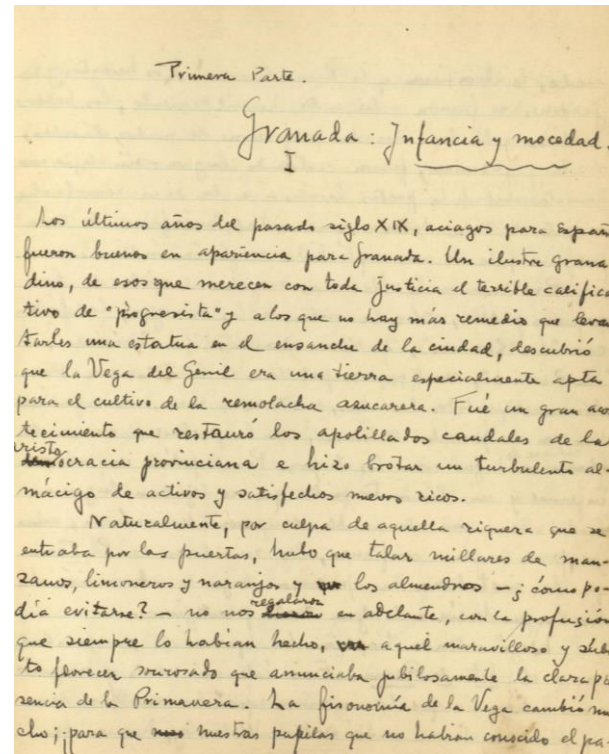 Primera Parte.
Granada: Infancia y mocedad.
I
Los últimos años del pasado siglo XIX, aciagos para Españ
fueron buenos en apariencia para Granada. Un ilustre grana
dino, de esos que merecen con toda justicia el terrible califica
tivo de "progresista" y a los que no hay más remedio que levan
tarles una estatua en el ensanche de la ciudad, descubrió
que la Vega del Genil era una tierra especialmente apta
para el cultivo de la remolacha azucarera. Fué un gran aco
tecimiento que restauró los apolillados caudales de la
aristocracia provinciana e hizo brotar un turbulento al-
mácigo de activos y satisfechos nuevos ricos.
Naturalmente, por culpa de aquella riqueza que se
entraba por las puertas, hubo que talar millares de man-
zanos, limoneros y naranjos y los almendros - ¿cómo po-
día evitarse? - no nos regalaron en adelante, con la profusión
que siempre lo habían hecho, aquel maravilloso y súbi
to florecer sonrosado que anunciaba jubilosamente la clara pre
sencia de la Primavera. La fisonomía de la Vega cambió mu
cho; para que nuestras pupilas que no habían conocido el pa